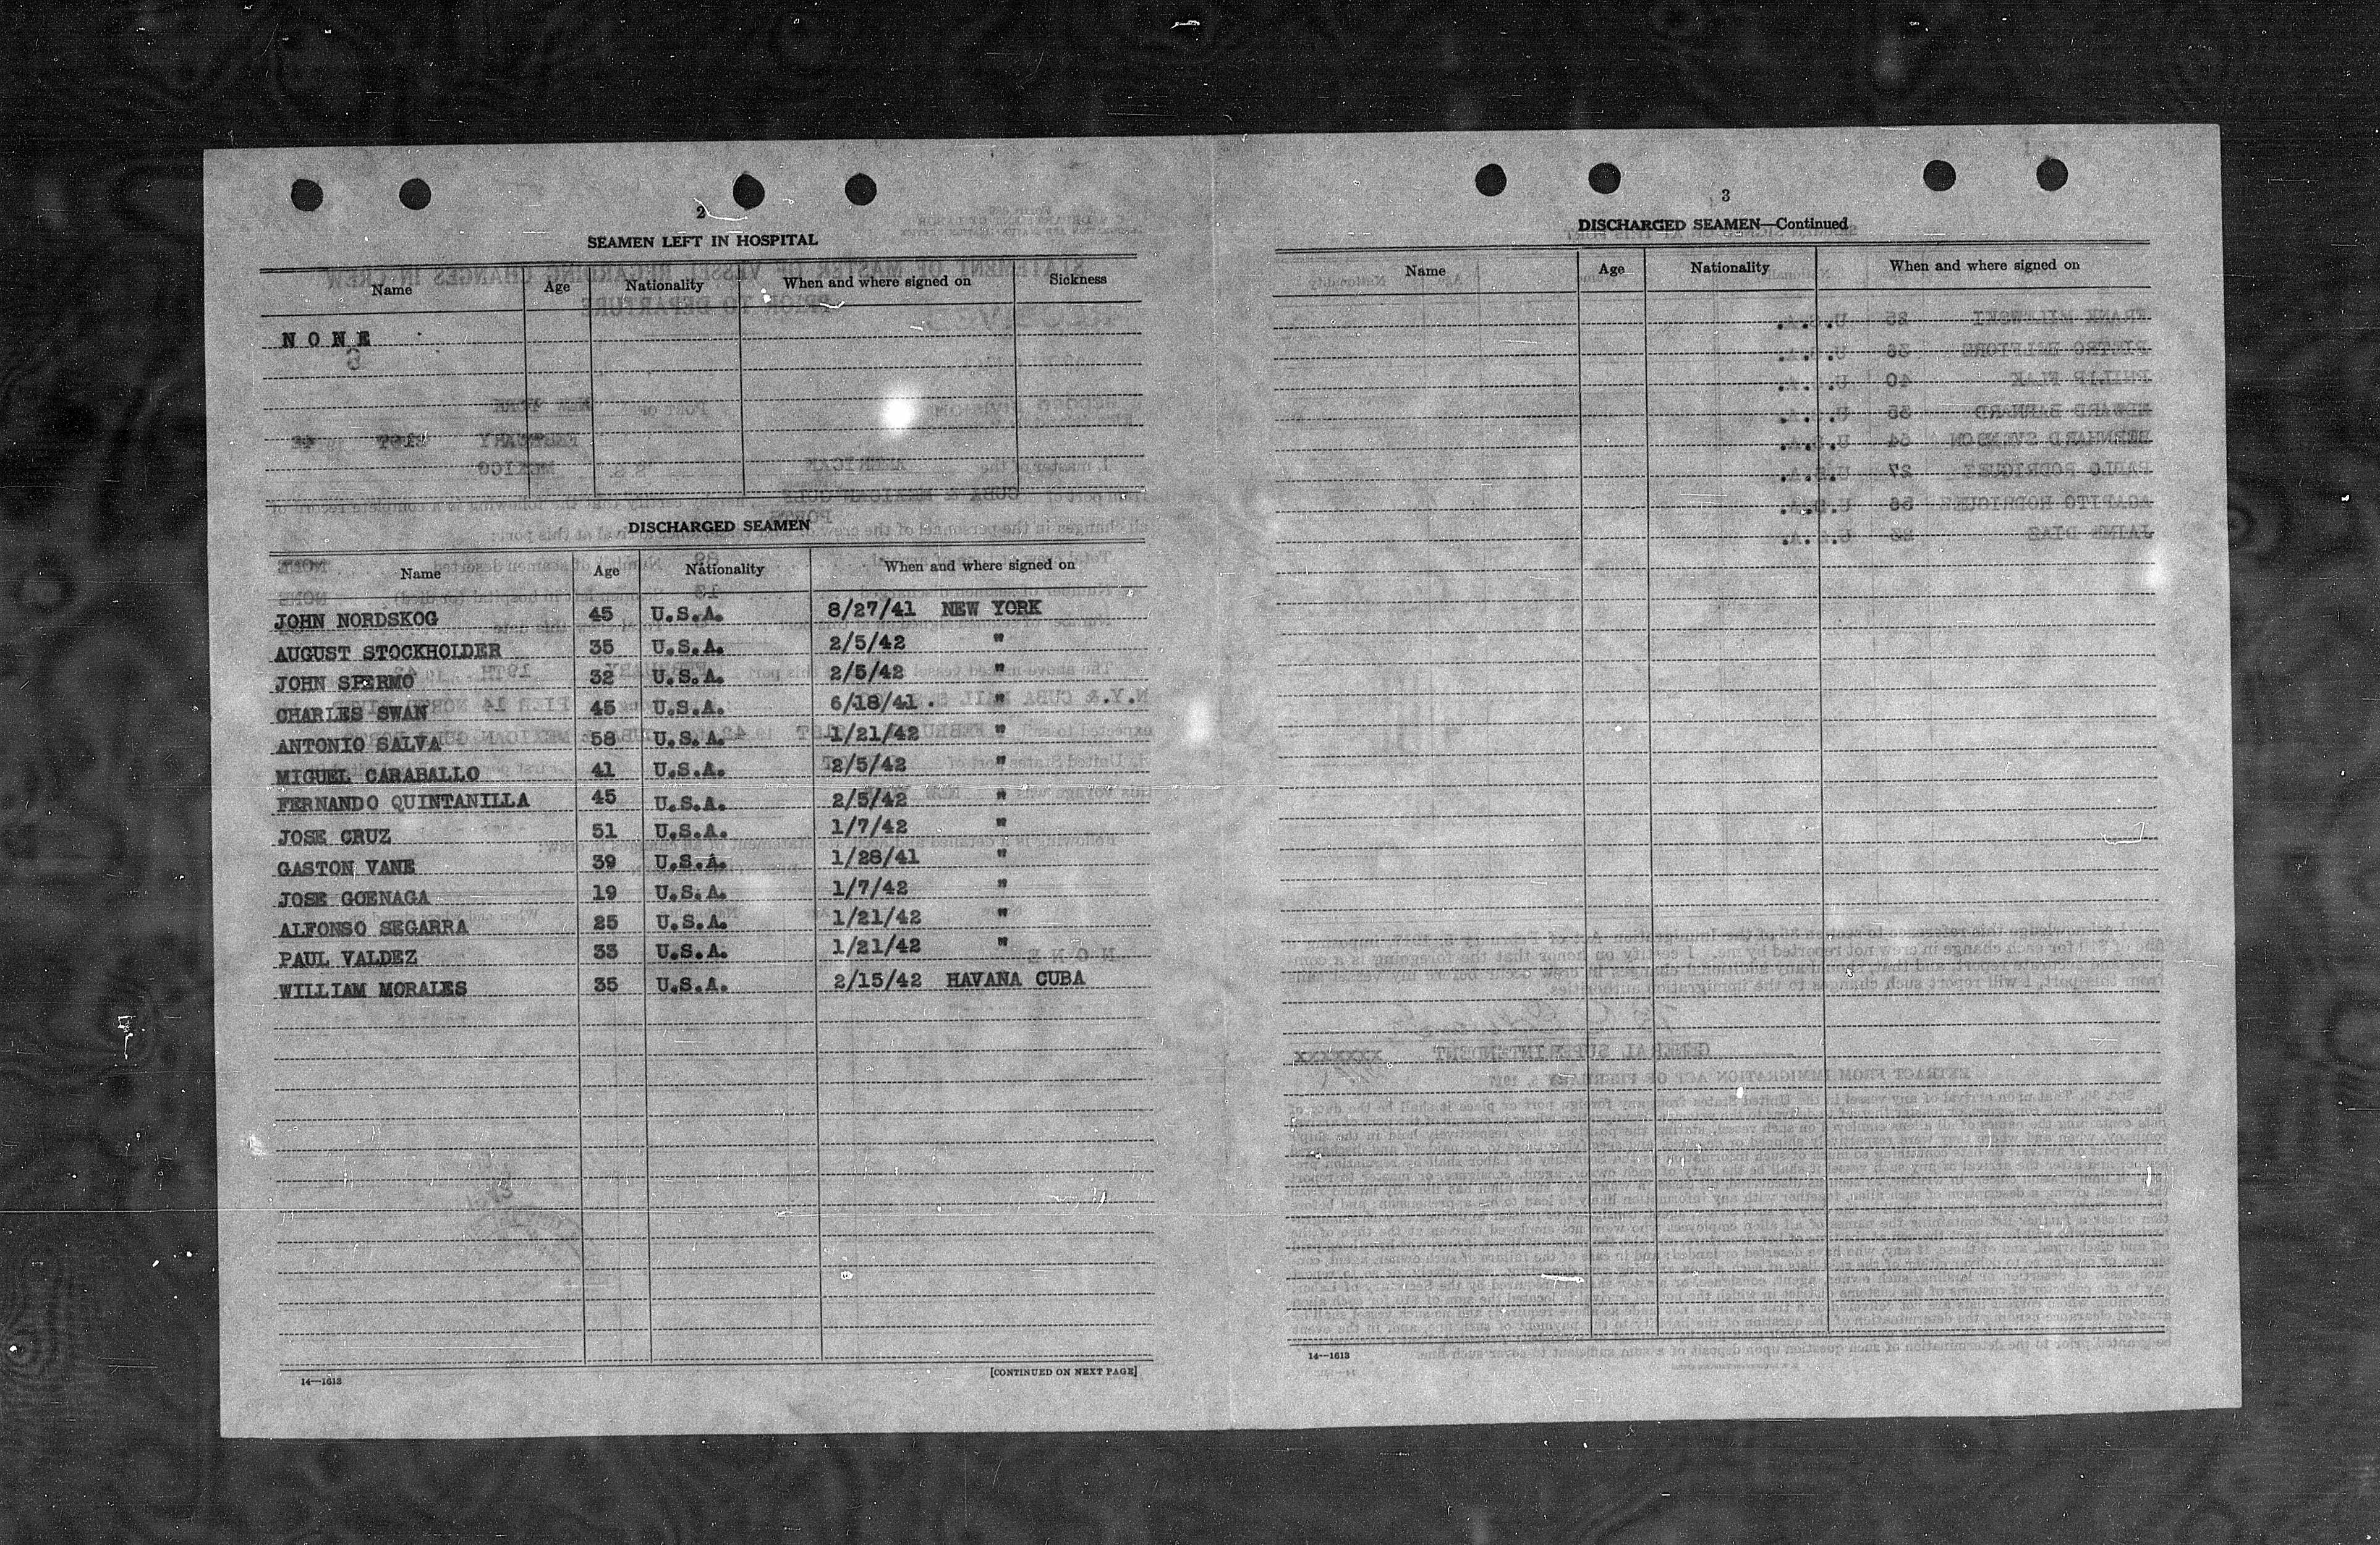 2
SEAMEN LEFT IN HOSPITAL
Name Age Nationality When and where signed on Sickness
NONE
DISCHARGED SEAMEN
Name Age Nationality When and where signed on
JOHN NORDSKOG 45 U.S.A. 8/27/41 NEW YORK
AUGUST STOCKHOLDER 35 U.S.A. 2/5/42 "
JOHN SPERMO 32 U.S.A. 2/5/42 "
CHARLES SWAN 45 U.S.A. 6/18/41. "
ANTONIO SALVA 58 U.S.A. 1/21/42 "
MIGUEL CARABALLO 41 U.S.A. 2/5/42 "
FERNANDO QUINTANILLA 45 U.S.A. 2/5/42 "
JOSE CRUZ 51 U.S.A. 1/7/42 "
GASTON VANE 39 U.S.A. 1/28/41 "
JOSE GOENAGA 19 U.S.A. 1/7/42 "
ALFONSO SEGARRA 25 U.S.A. 1/21/42 "
PAUL VALDEZ 33 U.S.A. 1/21/42 "
WILLIAM MORALES 35 U.S.A. 2/15/42 HAVANA CUBA
14—1613
[CONTINUED ON NEXT PAGE]
3
DISCHARGED SEAMEN—Continued
Name Age Nationality When and where signed on
14—1613